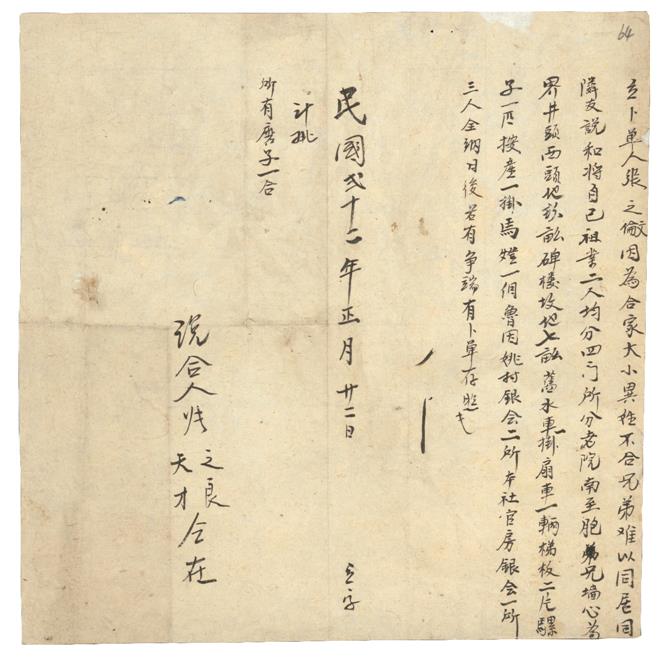 64
立卜單人張之儆因為合家大小異姓不合兄弟难以同居同
隣友説和将自己祖業二人均分四门所分老院南至胞兄墙心為
界井頭西頭地畝碑楼坟地七畝舊水車一掛扇車一輛梯板二片騾
子一匹按産一掛馬一個魯因姚村银会二所本社官房银会一所
三人全纳日後若有争端有卜單存照
民國弍十二年正月廿二日 立字
计批
所有磨子一合
説合人张之良 天才 仝在